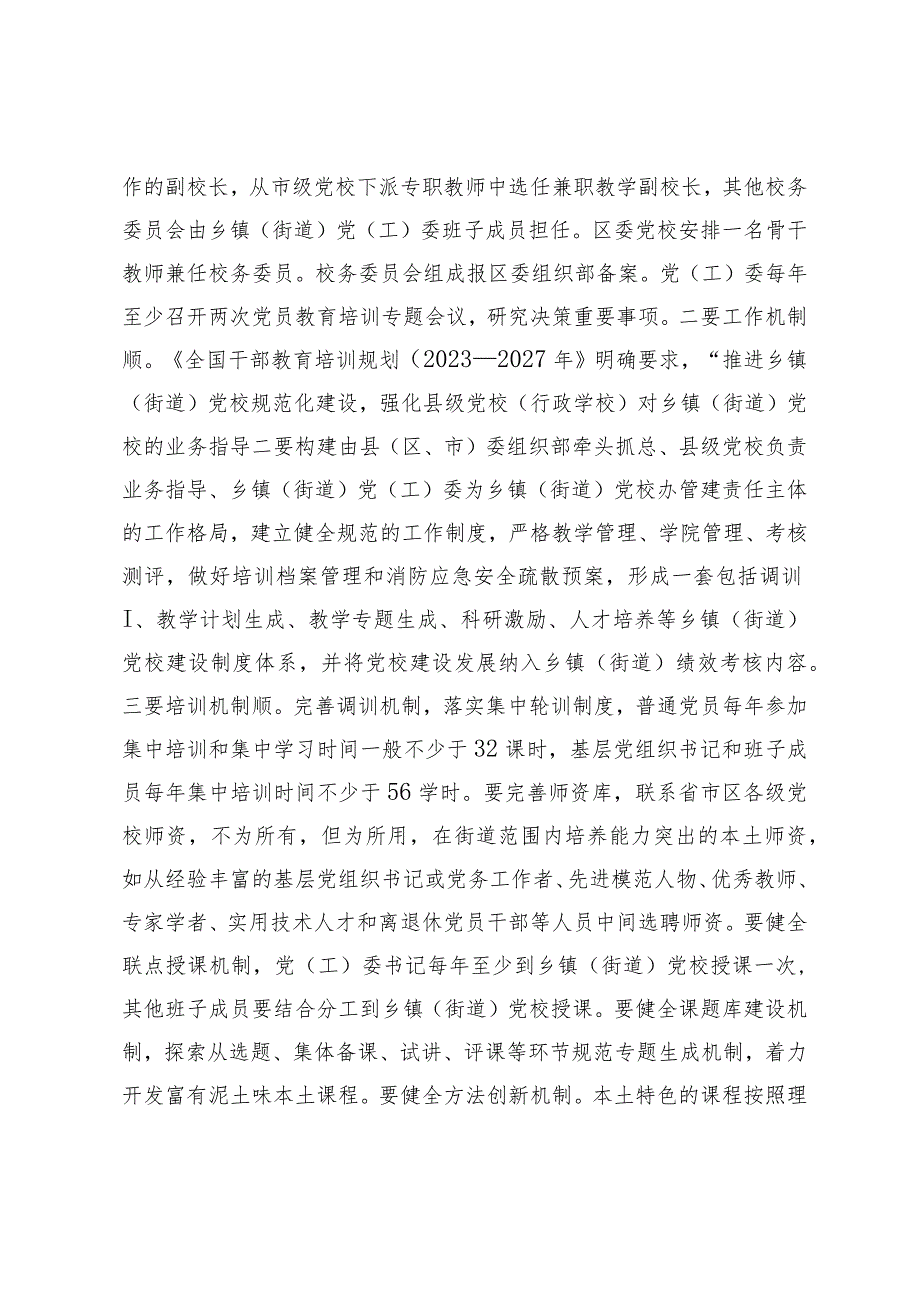 作的副校长，从市级党校下派专职教师中选任兼职教学副校长，其他校务
委员会由乡镇（街道）党（工）委班子成员担任。区委党校安排一名骨干
教师兼任校务委员。校务委员会组成报区委组织部备案。党（工）委每年
至少召开两次党员教育培训专题会议，研究决策重要事项。二要工作机制
顺。《全国干部教育培训规划（2023—2027 年》明确要求，“推进乡镇
（街道）党校规范化建设，强化县级党校（行政学校）对乡镇（街道）党
校的业务指导二要构建由县（区、市）委组织部牵头抓总、县级党校负责
业务指导、乡镇（街道）党（工）委为乡镇（街道）党校办管建责任主体
的工作格局，建立健全规范的工作制度，严格教学管理、学院管理、考核
测评，做好培训档案管理和消防应急安全疏散预案，形成一套包括调训
I、教学计划生成、教学专题生成、科研激励、人才培养等乡镇（街道）
党校建设制度体系，并将党校建设发展纳入乡镇（街道）绩效考核内容。
三要培训机制顺。完善调训机制，落实集中轮训制度，普通党员每年参加
集中培训和集中学习时间一般不少于 32 课时，基层党组织书记和班子成
员每年集中培训时间不少于 56 学时。要完善师资库，联系省市区各级党
校师资，不为所有，但为所用，在街道范围内培养能力突出的本土师资，
如从经验丰富的基层党组织书记或党务工作者、先进模范人物、优秀教师、
专家学者、实用技术人才和离退休党员干部等人员中间选聘师资。要健全
联点授课机制，党（工）委书记每年至少到乡镇（街道）党校授课一次，
其他班子成员要结合分工到乡镇（街道）党校授课。要健全课题库建设机
制，探索从选题、集体备课、试讲、评课等环节规范专题生成机制，着力
开发富有泥土味本土课程。要健全方法创新机制。本土特色的课程按照理